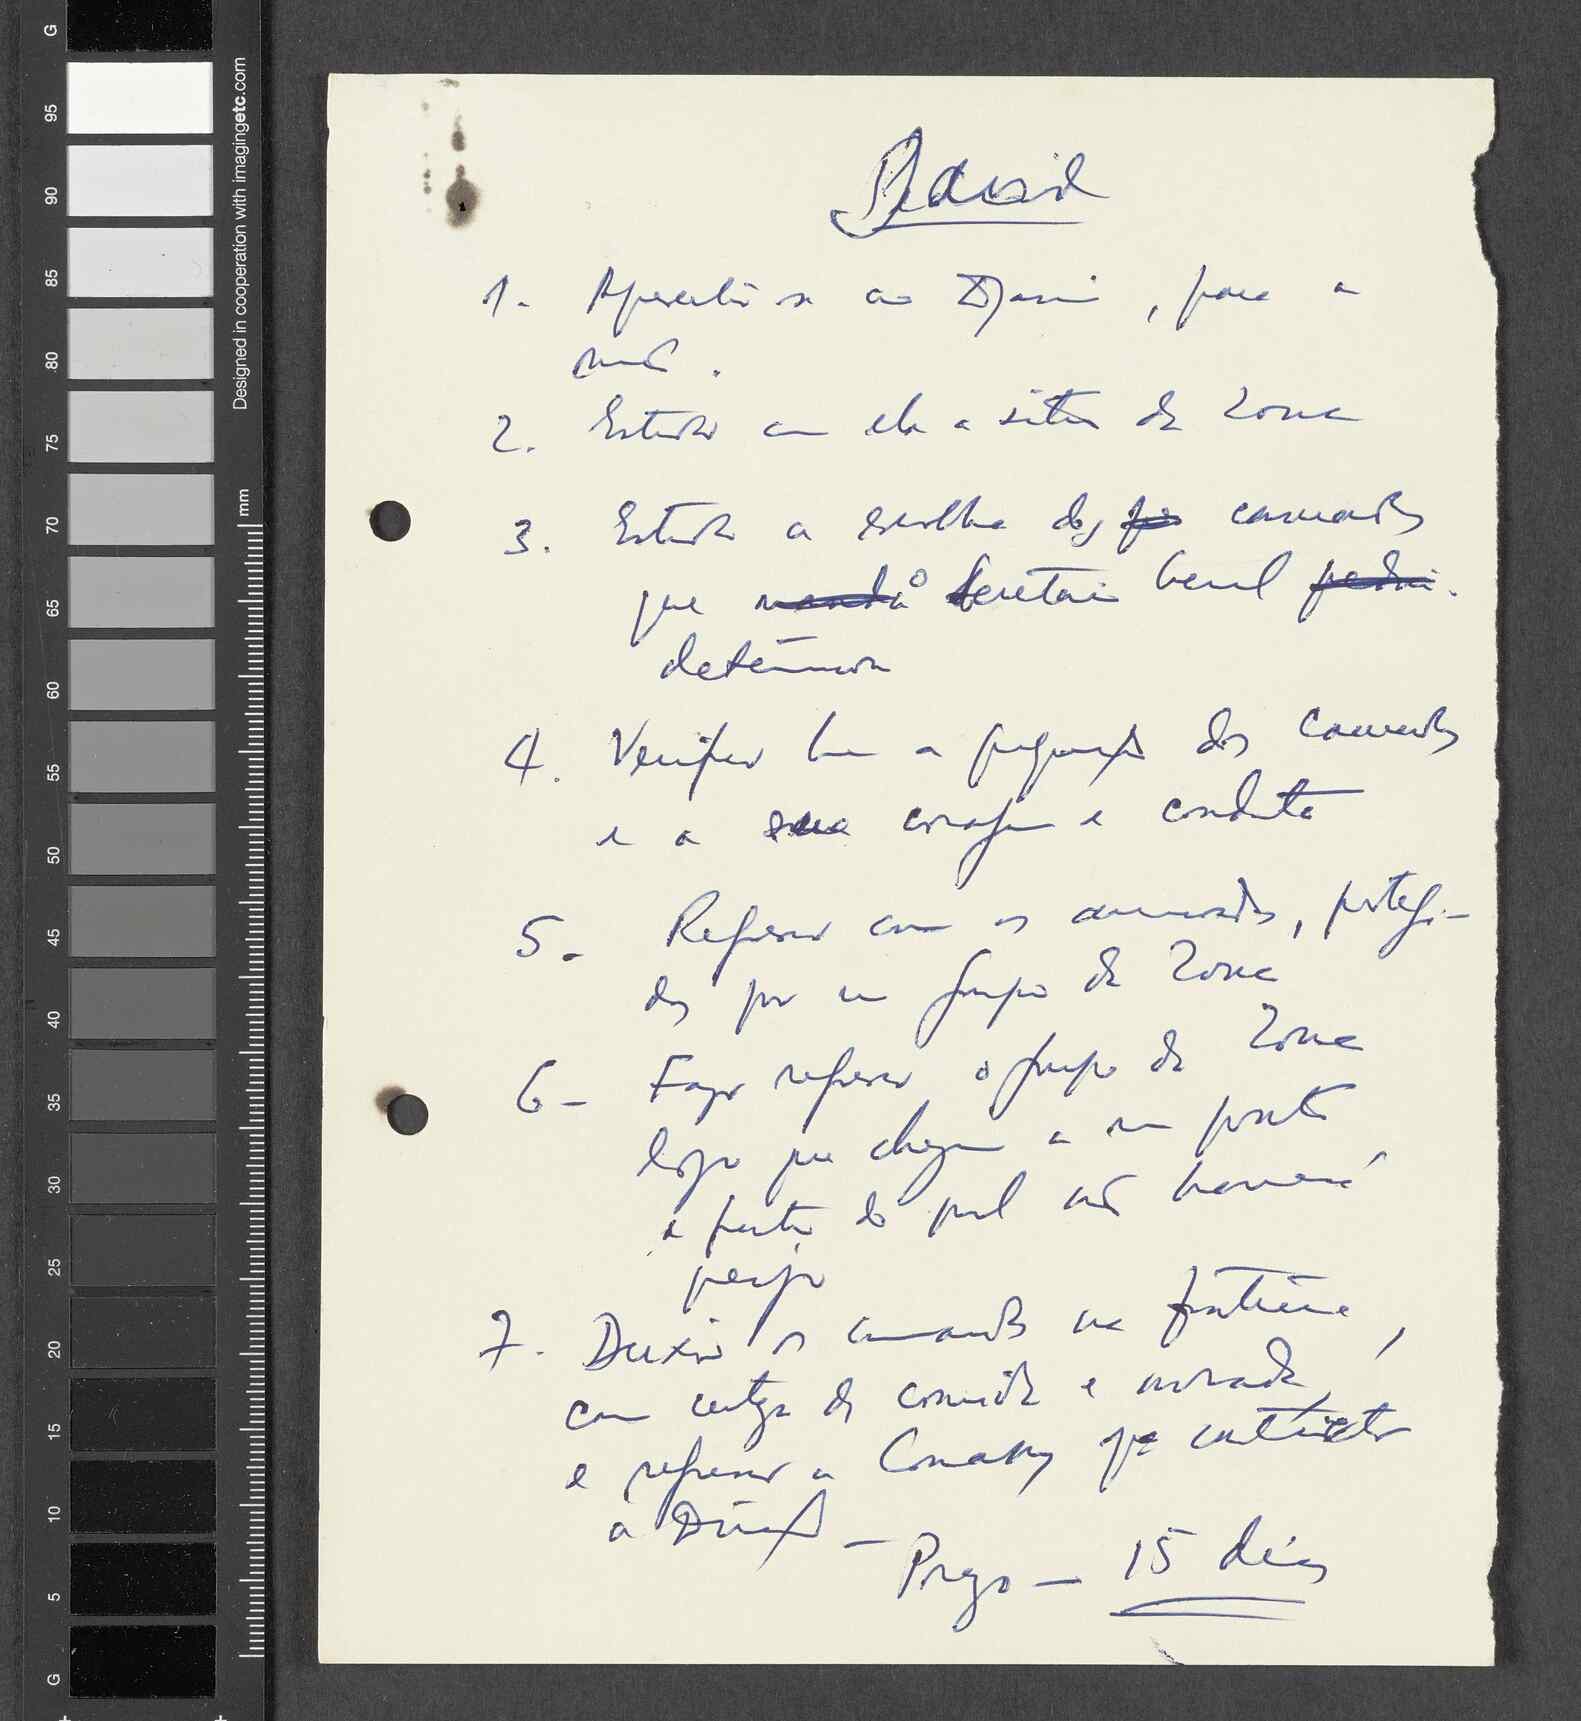 1. Apresentar-se ao Djassi, para a
2. Estudar com ele a situ da zona
3. Estudar a escolha dos camaradas
que o Secretário Geral
determinou
4. Verificar bem a preparação dos camaradas
e a sua coragem e conduta
5. Regressar com os camaradas, protegi-
dos por um grupo da zona
6- Fazer regressar o grupo da zona
logo que chegem a um ponto
a partir do qual não haverá
perigo
7. Deixar os camaradas na fronteira,
com certeza de comida e morada,
e regressar a Conakry
à Direcção -
Prazo - 15 dias
G
95
90
85
80
75
70
65
60
55
50
45
40
35
30
25
20
15
10
5
G
Designed in cooperation with imagingetc.com
mm